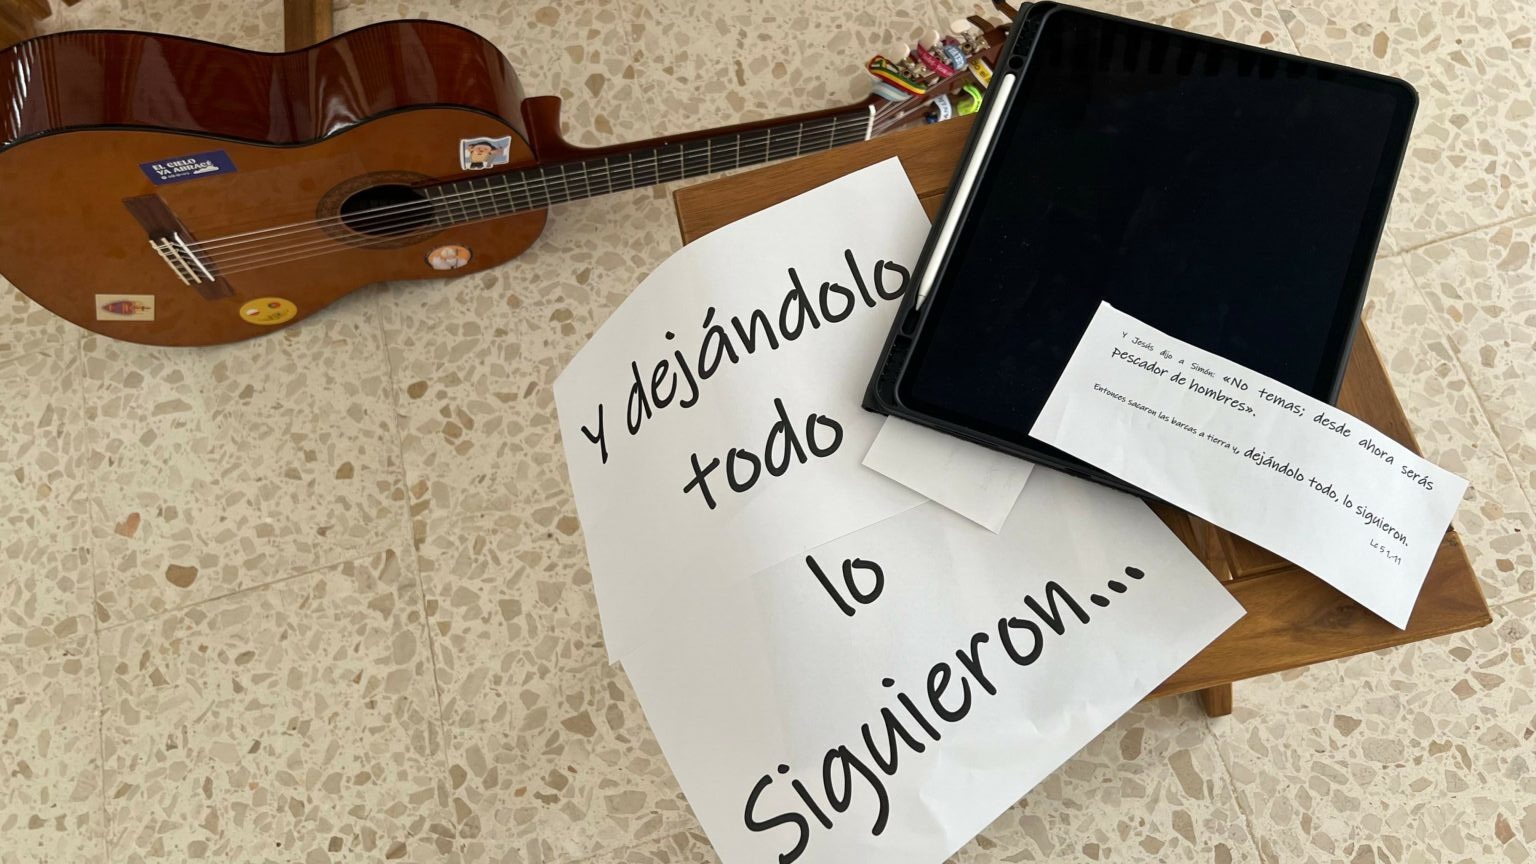 EL CIELO
YA ABRACÉ
y dejándolo
todo
lo
Siguieron...
Y Jesús dijo a Simón: «No temas; desde ahora serás
pescador de hombres».
Entonces sacaron las barcas a tierra y, dejándolo todo, lo siguieron.
Lc 5 1,-11